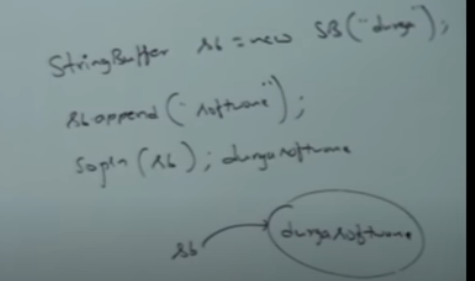 StringBuffer sb = new SB("durga");
sb.append("software");
Sopln(sb); durgasoftware
sb → durgasoftware